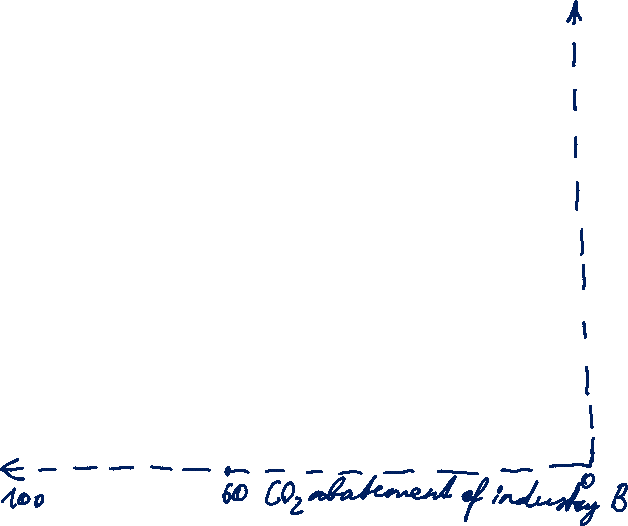 100 60 CO₂ abatement of industry B 0